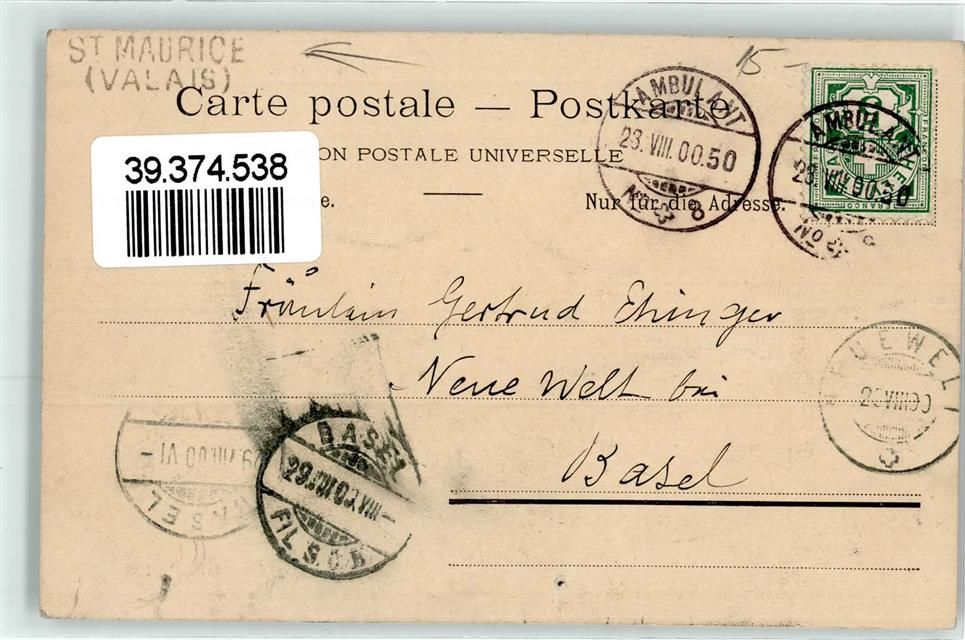 ST MAURICE
(VALAIS)
15 -
Carte postale — Postkarte
39.374.538
ON POSTALE UNIVERSELLE
e.
Nur für die Adresse.
AMBULANT
23.VIII.00.50
No 8
AMBULANT
23.VIII.00.50
No
FRANCO
Fräulein Gertrud Ehinger
Neue Welt bei
Basel
BASEL
29.VIII.00.VIII-
FIL. S.C.B.
29.VIII.00.VI-
BASEL
NEUEWELT
29VIII00